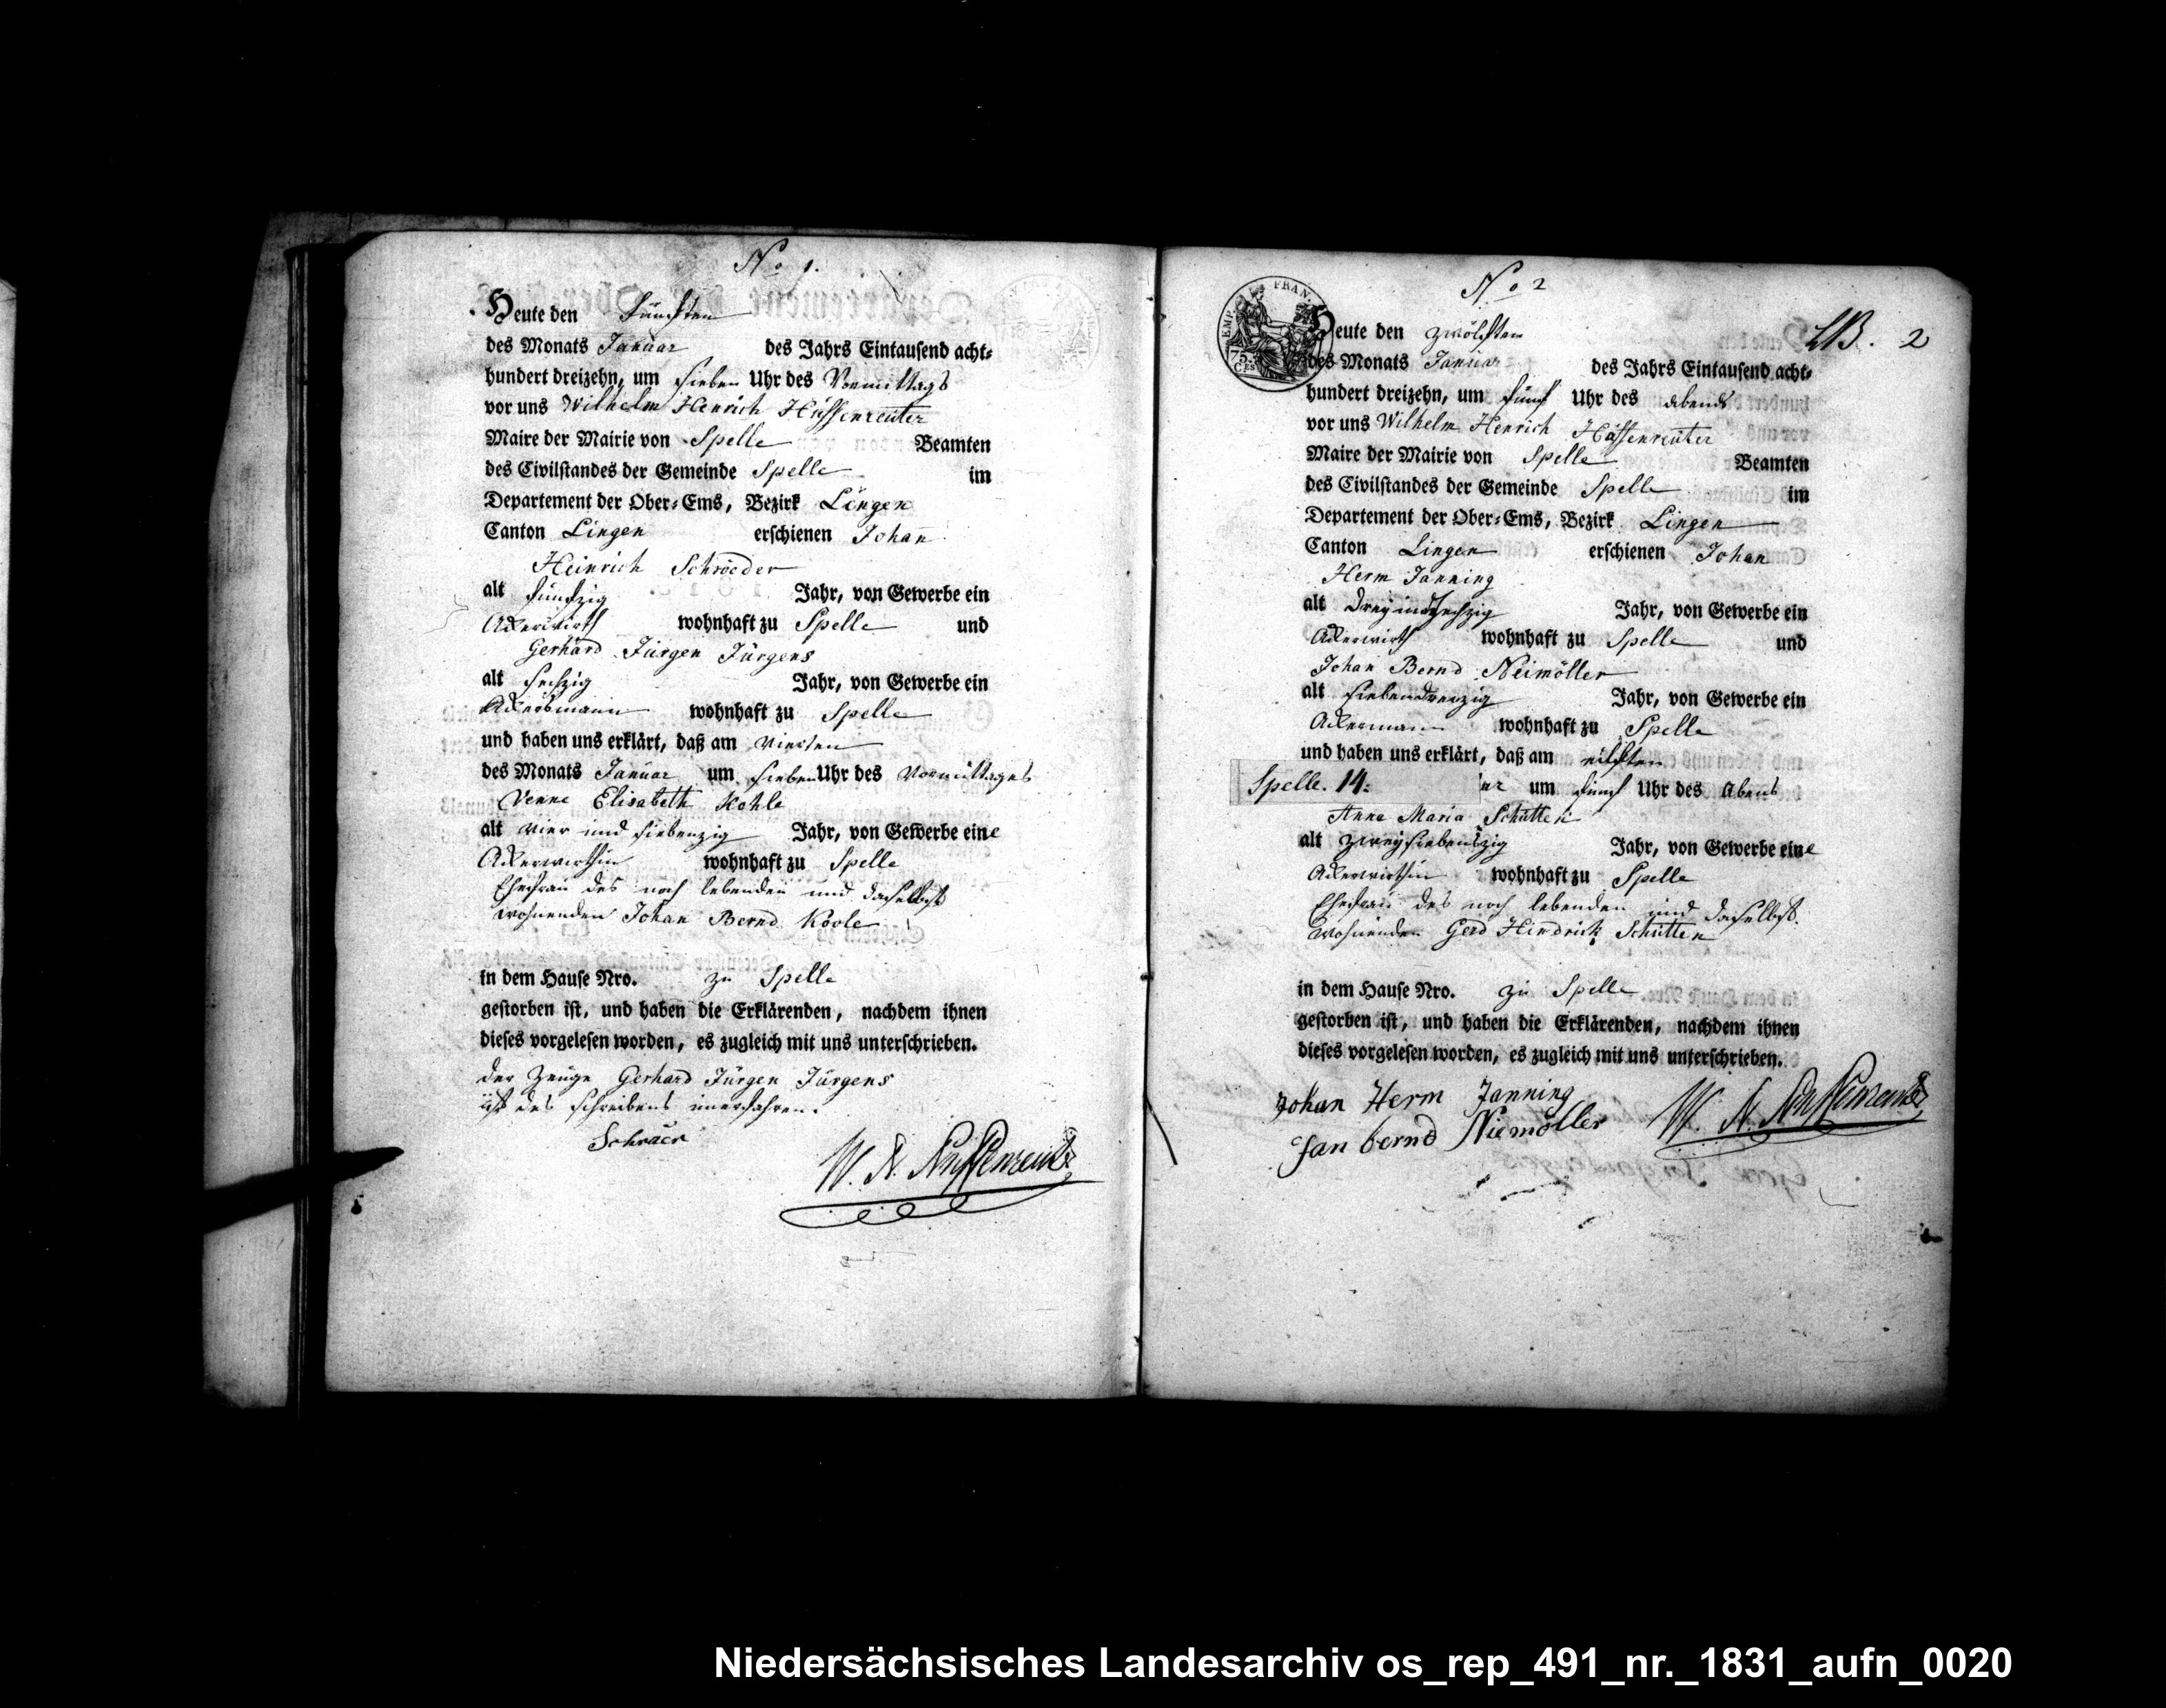 No 1.
Heute den fünften
des Monats Januar des Jahrs Eintausend acht-
hundert dreizehn, um sieben Uhr des Vormittags
vor uns Wilhelm Henrich Hüssenreuter
Maire der Mairie von Spelle Beamten
des Civilstandes der Gemeinde Spelle im
Departement der Ober-Ems, Bezirk Lingen
Canton Lingen erschienen Johan
Heinrich Schröeder
alt funfzig Jahr, von Gewerbe ein
Ackerwirth wohnhaft zu Spelle und
Gerhard Jürgen Jürgens
alt sechzig Jahr, von Gewerbe ein
Ackersmann wohnhaft zu Spelle
und haben uns erklärt, daß am vierten
des Monats Januar um sieben Uhr des Vormittages
Venne Elisabeth Kohle
alt vier und siebenzig Jahr, von Gewerbe eine
Ackerwirthin wohnhaft zu Spelle
Ehefrau des noch lebenden und daselbst
wohnenden Johan Bernd Koole
in dem Hause Nro. zu Spelle
gestorben ist, und haben die Erklärenden, nachdem ihnen
dieses vorgelesen worden, es zugleich mit uns unterschrieben.
der Zeuge Gerhard Jürgen Jürgens
ist des schreibens unerfahren.
Schräer
No 2
2
TIMP. FRAN.
75. CES
Heute den zwölften
des Monats Januar des Jahrs Eintausend acht-
hundert dreizehn, um fünf Uhr des abends
vor uns Wilhelm Henrich Hüssenreuter
Maire der Mairie von Spelle Beamten
des Civilstandes der Gemeinde Spelle im
Departement der Ober-Ems, Bezirk Lingen
Canton Lingen erschienen Johan
Herm Janning
alt dreyundsechzig Jahr, von Gewerbe ein
Ackerwirth wohnhaft zu Spelle und
Johan Bernd Neimöller
alt Jahr, von Gewerbe ein
Ackermann wohnhaft zu Spelle
und haben uns erklärt, daß am eilften
Spelle. 14. er um fünf Uhr des Abens
Anna Maria Schütten
alt zweysiebenzig Jahr, von Gewerbe eine
Ackerwirthin wohnhaft zu Spelle
Ehefrau des noch lebenden und daselbst
wohnenden Gerd Hindrick Schütten
in dem Hause Nro. zu Spelle
gestorben ist, und haben die Erklärenden, nachdem ihnen
dieses vorgelesen worden, es zugleich mit uns unterschrieben.
Johan Herm Janning
Jan bernd Niemöller
Niedersächsisches Landesarchiv os_rep_491_nr._1831_aufn_0020